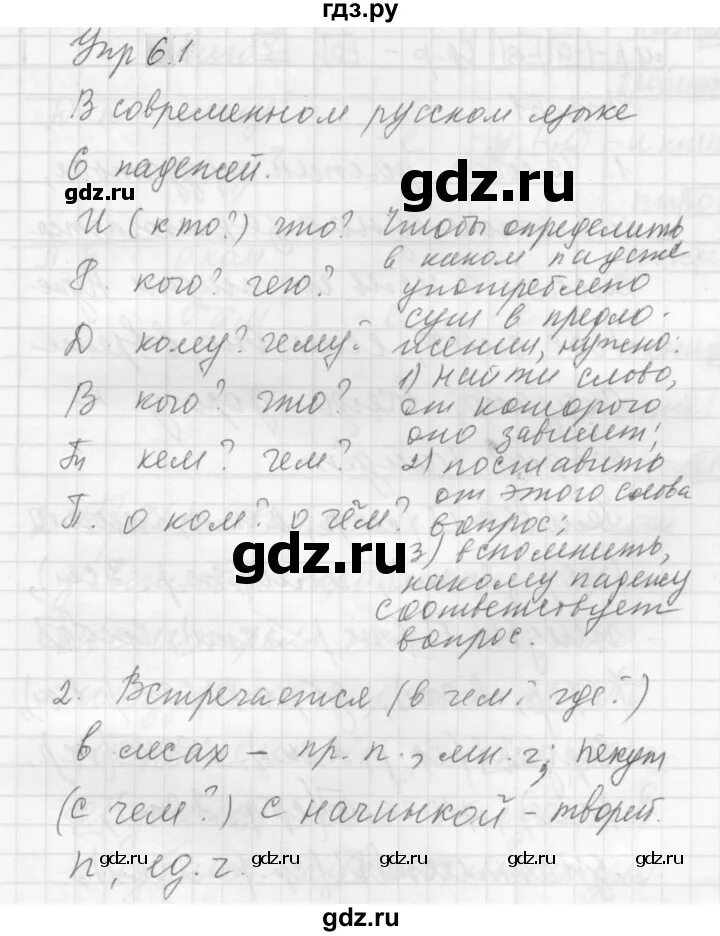 гдз.ру
Упр 6.1
В современном русском языке
6 падежей.
gdz.ru
gdz.ru
И (кто?) что?
Р. кого? чего?
Д. кому? чему?
В кого? что?
Тв кем? чем?
П. о ком? о чём?
Чтобы определить
в каком падеже
употреблено
сущ в предло-
жении, нужно:
1) найти слово,
от которого
оно зависит;
2) поставить
от этого слова
вопрос;
3) вспомнить,
какому падежу
соответствует
вопрос.
gdz.ru
gdz.ru
gdz.ru
gdz.ru
2. Встречается (в чем? где?)
в лесах – пр. п., мн. ч; пекут
(с чем?) с начинкой – творит.
п, ед. ч.
gdz.ru
gdz.ru
gdz.ru
gdz.ru